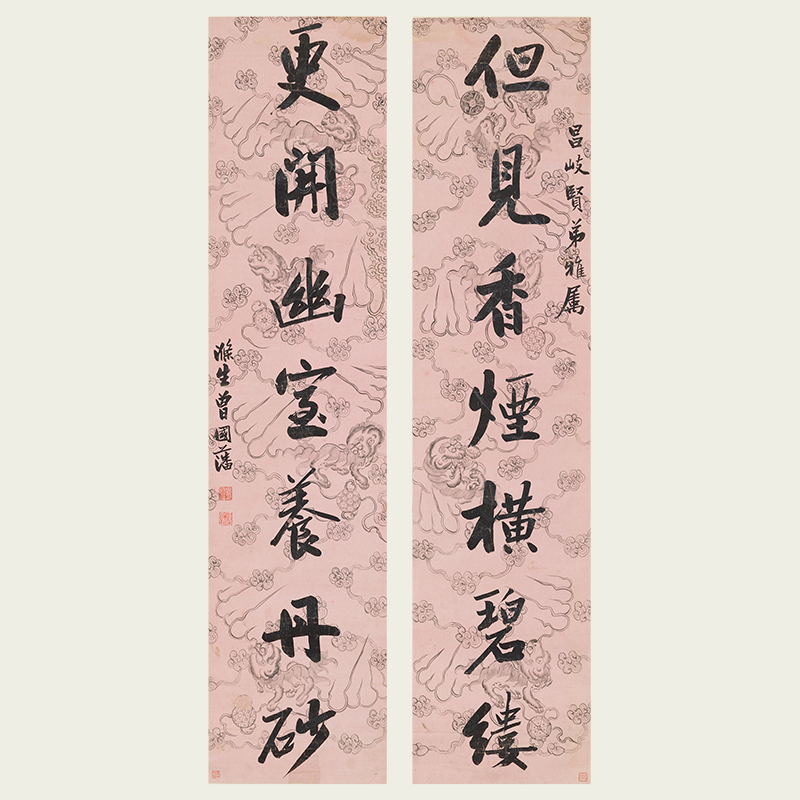 昌岐賢弟雅屬
但見香煙橫碧縷
更開幽室養丹砂
滌生曾國藩